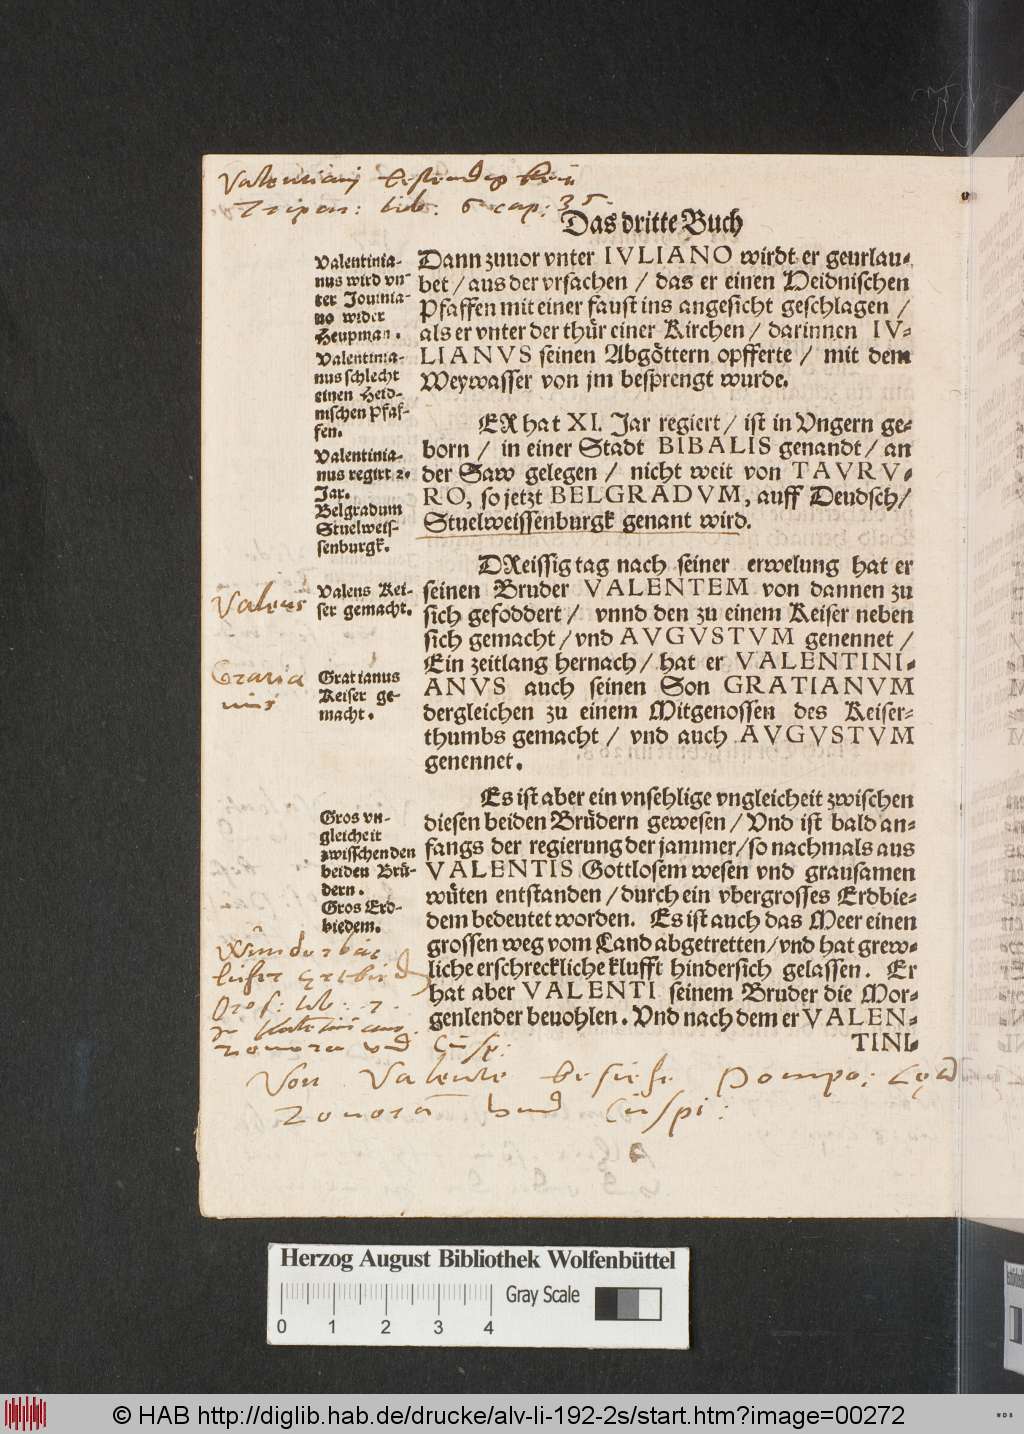 Das dritte Buch
Dann zuuor vnter IVLIANO wirdt er geurlau-
bet / aus der vrsachen / das er einen Heidnischen
Pfaffen mit einer faust ins angesicht geschlagen /
als er vnter der thür einer Kirchen / darinnen IV-
LIANVS seinen Abgöttern opfferte / mit dem
Weywasser von jm besprengt wurde.
ER hat XI. Jar regiert / ist in Vngern ge-
born / in einer Stadt BIBALIS genandt / an
der Saw gelegen / nicht weit von TAVRV-
RO, so jetzt BELGRADVM, auff Deudsch /
Stuelweissenburgk genant wird.
DReissig tag nach seiner erwelung hat er
seinen Bruder VALENTEM von dannen zu
sich gefoddert / vnnd den zu einem Keiser neben
sich gemacht / vnd AVGVSTVM genennet /
Ein zeitlang hernach / hat er VALENTINI-
ANVS auch seinen Son GRATIANVM
dergleichen zu einem Mitgenossen des Keiser-
thumbs gemacht / vnd auch AVGVSTVM
genennet.
Es ist aber ein vnsehlige vngleicheit zwischen
diesen beiden Brüdern gewesen / Vnd ist bald an-
fangs der regierung der jammer / so nachmals aus
VALENTIS Gottlosem wesen vnd grausamen
wüten entstanden / durch ein vbergrosses Erdbie-
dem bedeutet worden. Es ist auch das Meer einen
grossen weg vom Land abgetretten / vnd hat grew-
liche erschreckliche klufft hindersich gelassen. Er
hat aber VALENTI seinem Bruder die Mor-
genlender beuohlen. Vnd nach dem er VALEN-
TINI-
Valentinia-
nus wird vn-
ter Jouinia-
no wider
Heupman.
Valentinia-
nus schlecht
einen Heid-
nischen Pfaf-
fen.
Valentinia-
nus regirt 2.
Jar.
Belgradum
Stuelweis-
senburgk.
Valens Kei-
ser gemacht.
Gratianus
Keiser ge-
macht.
Gros vn-
gleicheit
zwisschen den
beiden Brü-
dern.
Gros Erd-
biedem.
Tripar: lib: 6 cap: 35.
Valens
Gratia
nus
Von Valente besiehe Pompo:
Zonorā vnd Cuspi:
Herzog August Bibliothek Wolfenbüttel
Gray Scale
0 1 2 3 4
© HAB http://diglib.hab.de/drucke/alv-li-192-2s/start.htm?image=00272